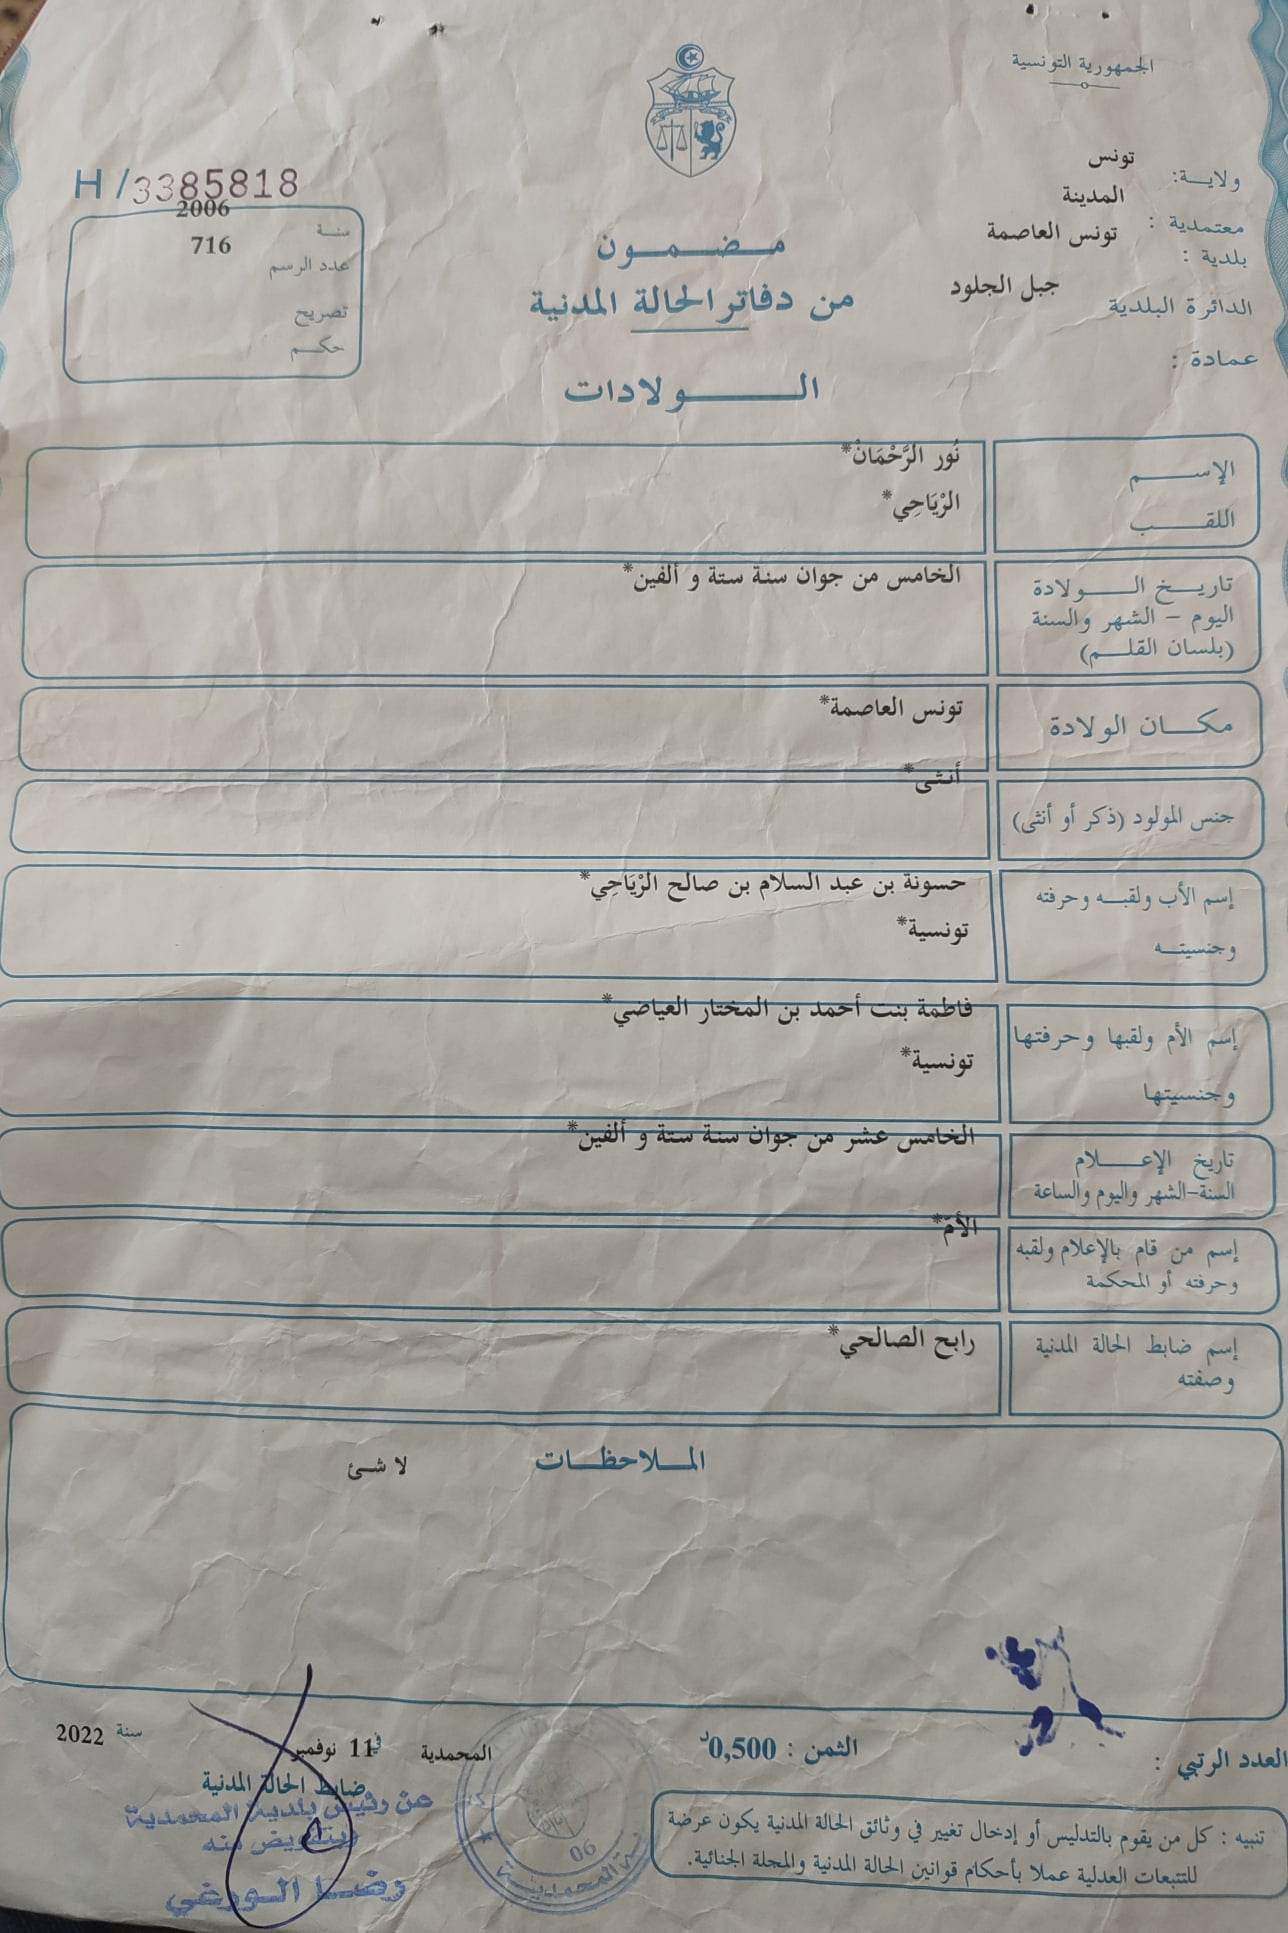 الجمهورية التونسية
ولايـة: تونس
معتمدية : المدينة
بلدية : تونس العاصمة
الدائرة البلدية جبل الجلود
عمادة :
H/3385818
سنـة 2006
عدد الرسم 716
تصريح
حكـم
مـضـمـون
من دفاتر الحالة المدنية
الـولادات
الإسـم نُور الرَّحْمَانْ*
اللقـب الرْيَاحِي*
تاريـخ الـولادة
اليوم - الشهر والسنة
(بلسان القلـم)
الخامس من جوان سنة ستة و ألفين*
مكـان الولادة تونس العاصمة*
جنس المولود (ذكر أو أنثى) أنثى*
إسم الأب ولقبـه وحرفته حسونة بن عبد السلام بن صالح الرْيَاحِي*
وجنسيتـه تونسية*
إسم الأم ولقبها وحرفتها فاطمة بنت أحمد بن المختار العياضي*
وجنسيتها تونسية*
تاريخ الإعـلام
السنة-الشهر واليوم والساعة
الخامس عشر من جوان سنة ستة و ألفين*
إسم من قام بالإعلام ولقبه
وحرفته أو المحكمة
الأمّ*
إسم ضابط الحالة المدنية رابح الصالحي*
وصفته
المـلاحظـات
لا شئ
العدد الرتبي :
الثمن : 0,500د
المحمدية في 11 نوفمبر سنة 2022
ضابط الحالة المدنية
عن رئيس بلدية المحمدية
وبتفويض منه
رضـا الـورغي
06
المحمديـة
تنبيه : كل من يقوم بالتدليس أو إدخال تغيير في وثائق الحالة المدنية يكون عرضة
للتتبعات العدلية عملا بأحكام قوانين الحالة المدنية والمجلة الجنائية.